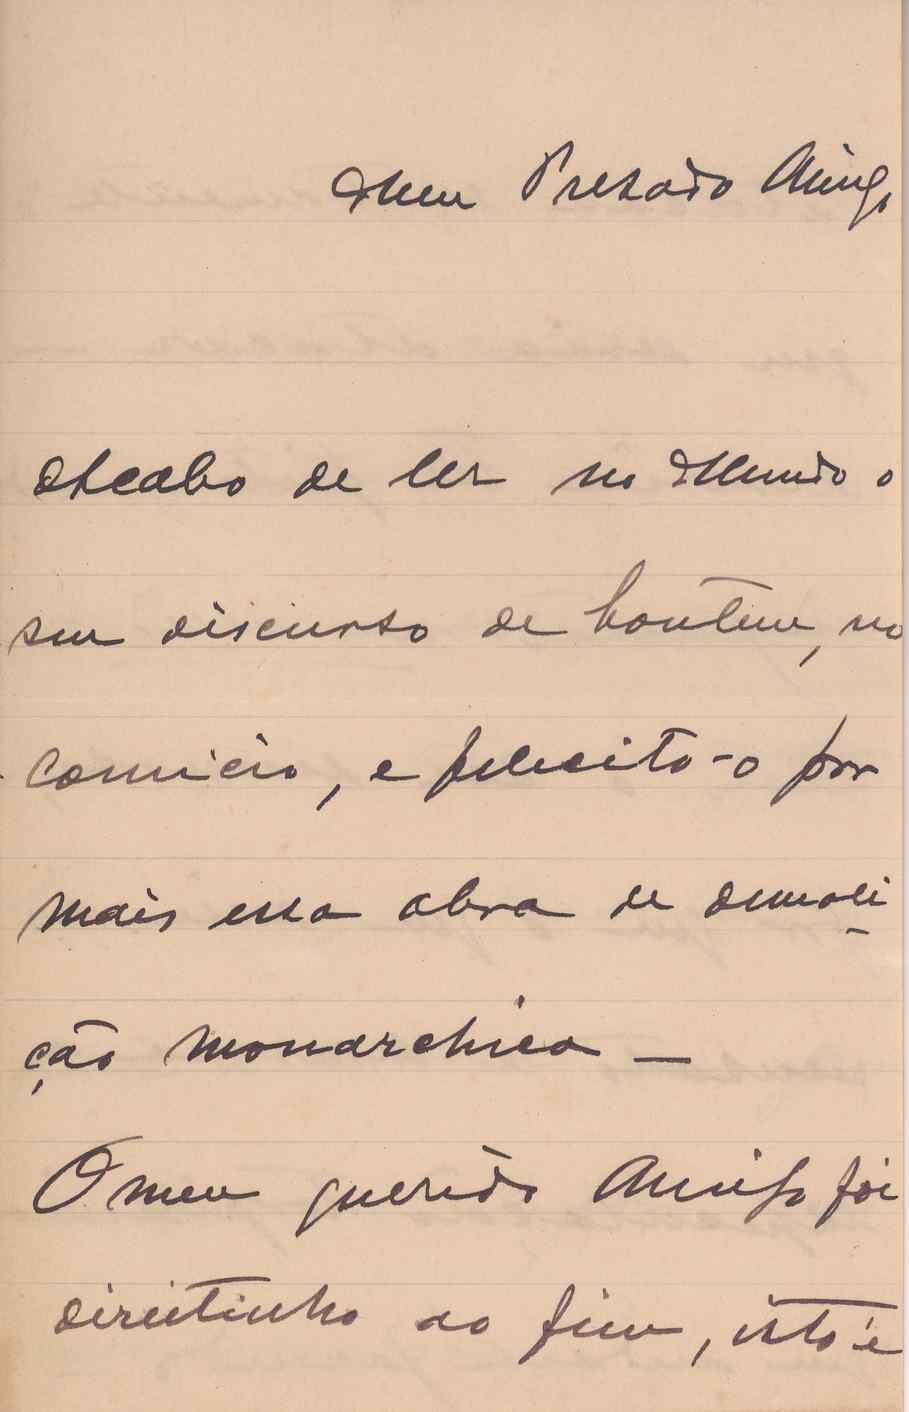 Meu Presado Amigo
Acabo de ler no Mundo o
seu discurso de hontem, no
comicio, e felicito-o por
mais essa obra de demoli-
ção monarchica —
O meu querido Amigo foi
direitinho ao fim, isto é